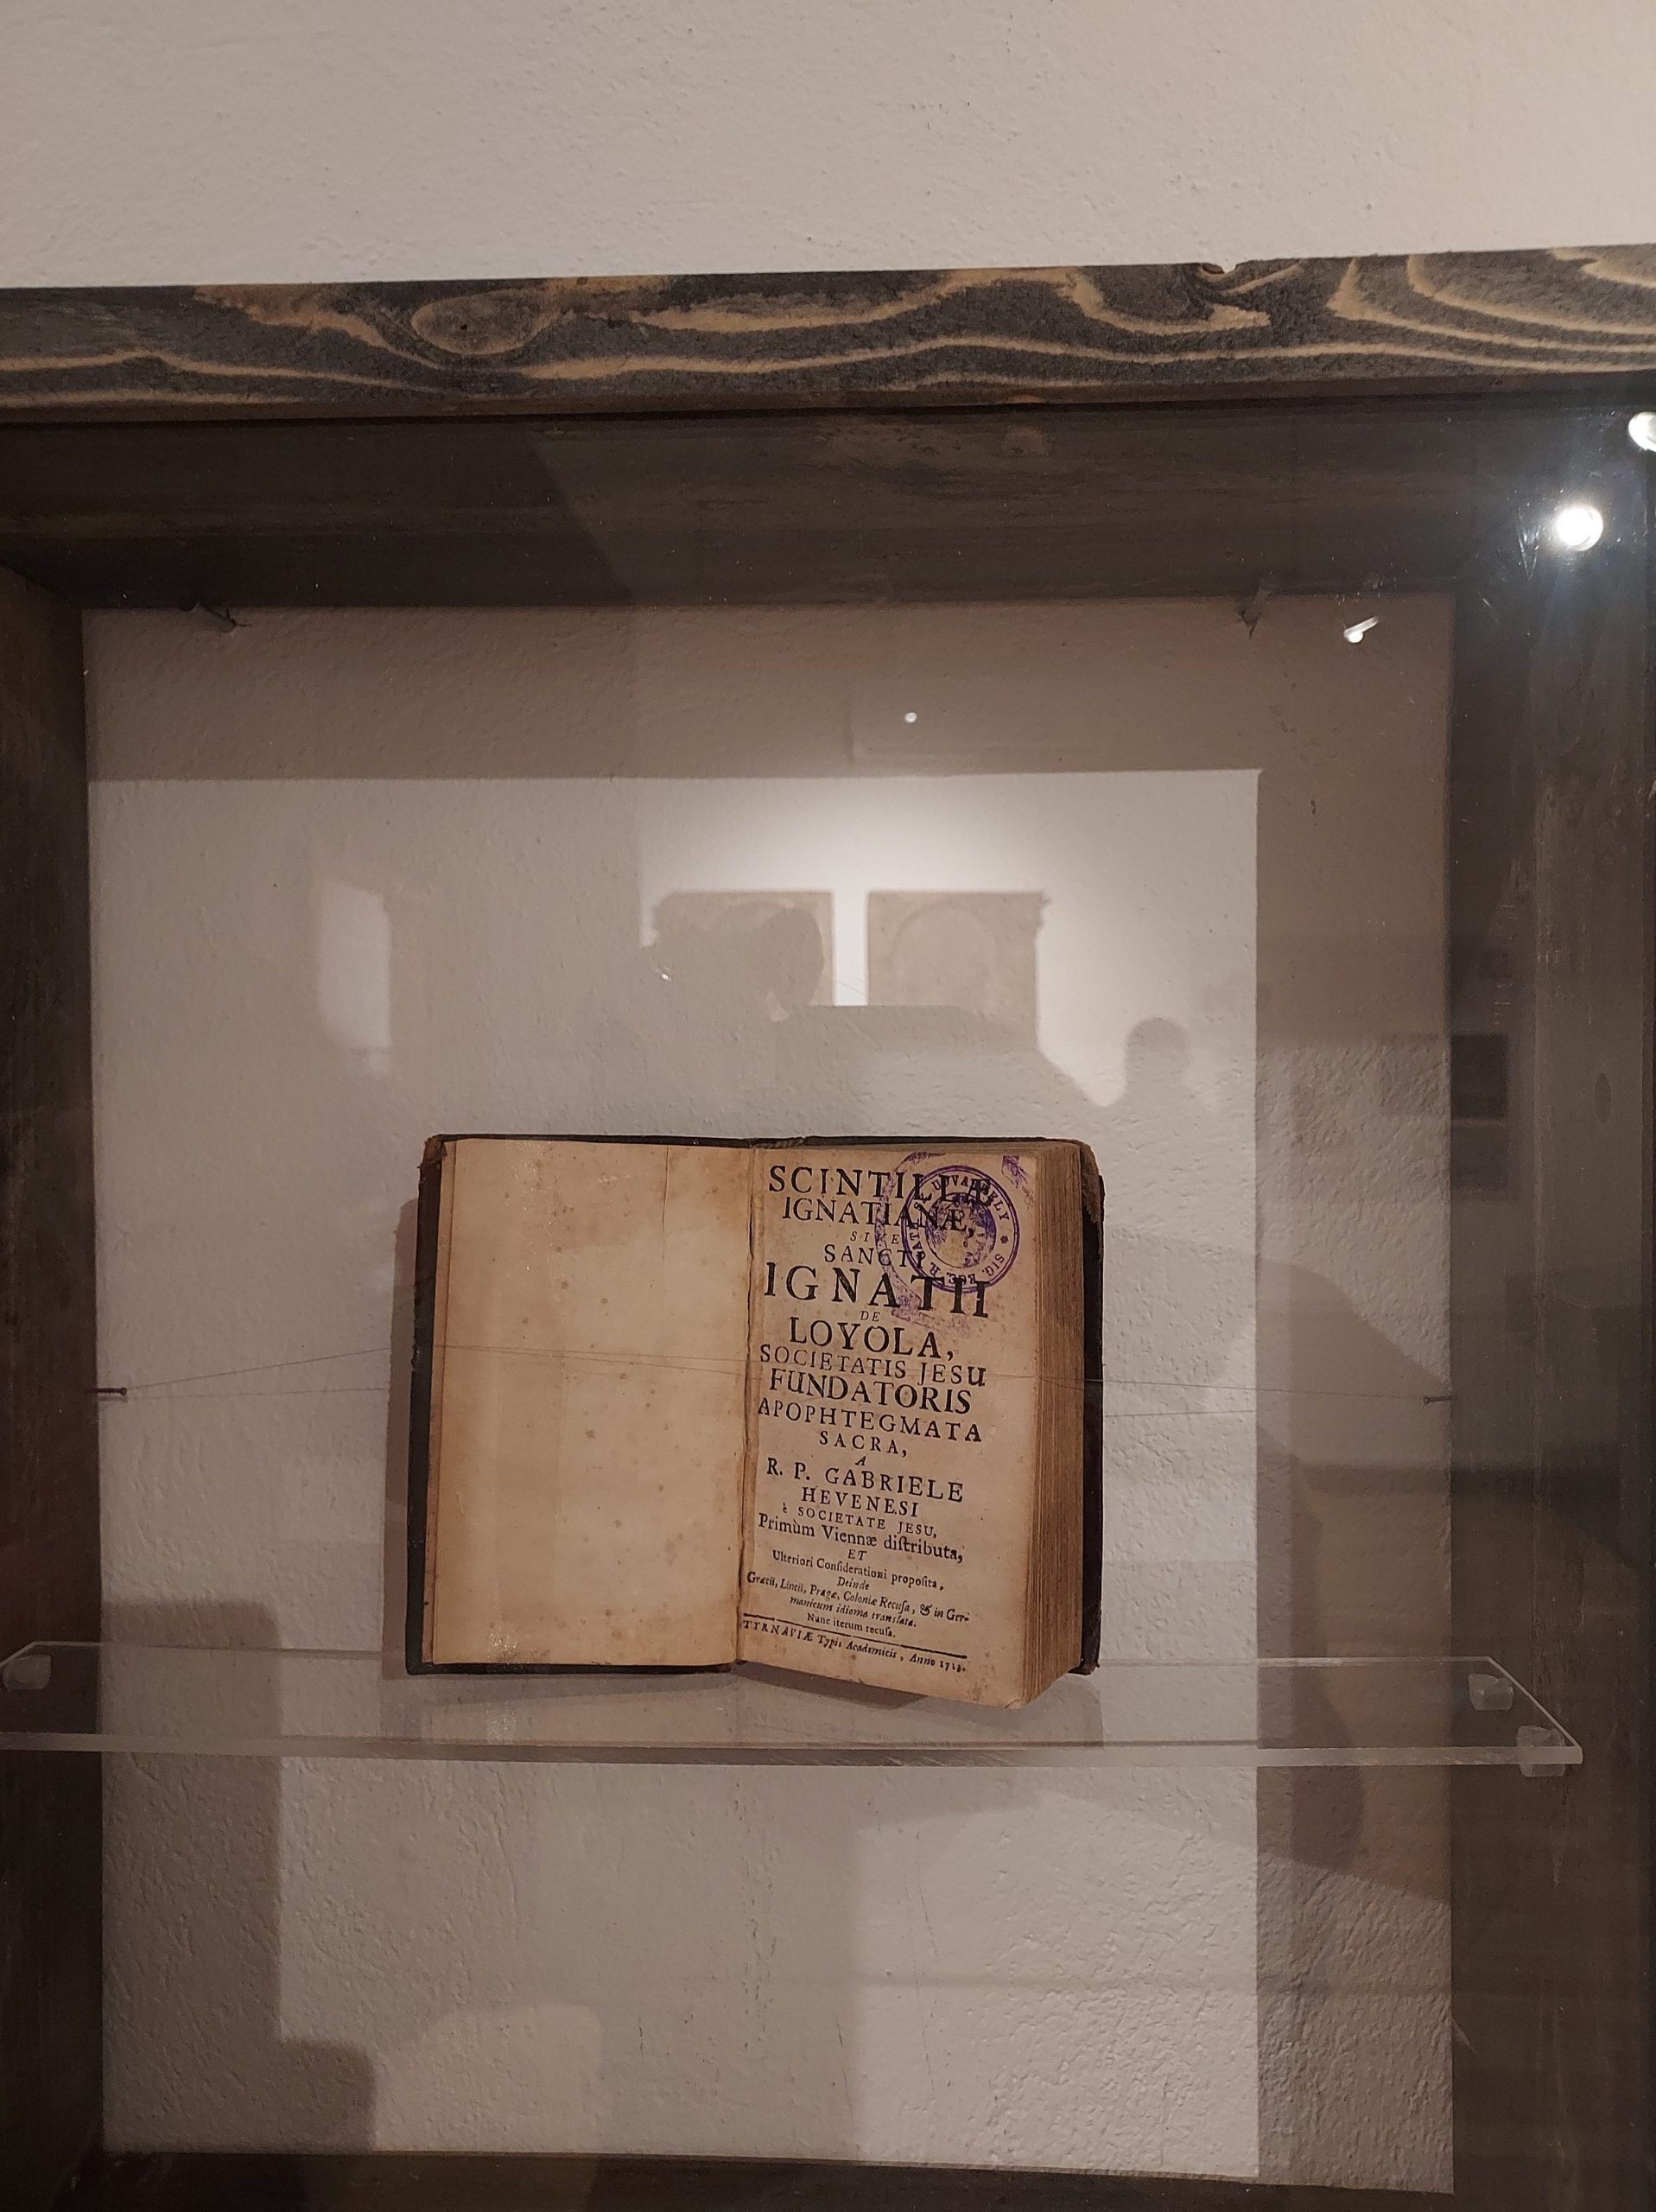 SCINTILLÆ
IGNATIANÆ,
SIVE
SANCTI
IGNATII
DE
LOYOLA,
SOCIETATIS JESU
FUNDATORIS
APOPHTEGMATA
SACRA,
A
R. P. GABRIELE
HEVENESI
è SOCIETATE JESU,
Primùm Viennæ diſtributa,
ET
Ulteriori Conſiderationi propoſita,
Deinde
Græcii, Lincii, Pragæ, Coloniæ Recuſa, & in Ger-
manicum idioma translata.
Nunc iterum recuſa.
TYRNAVIÆ Typis Academicis, Anno
SIG.